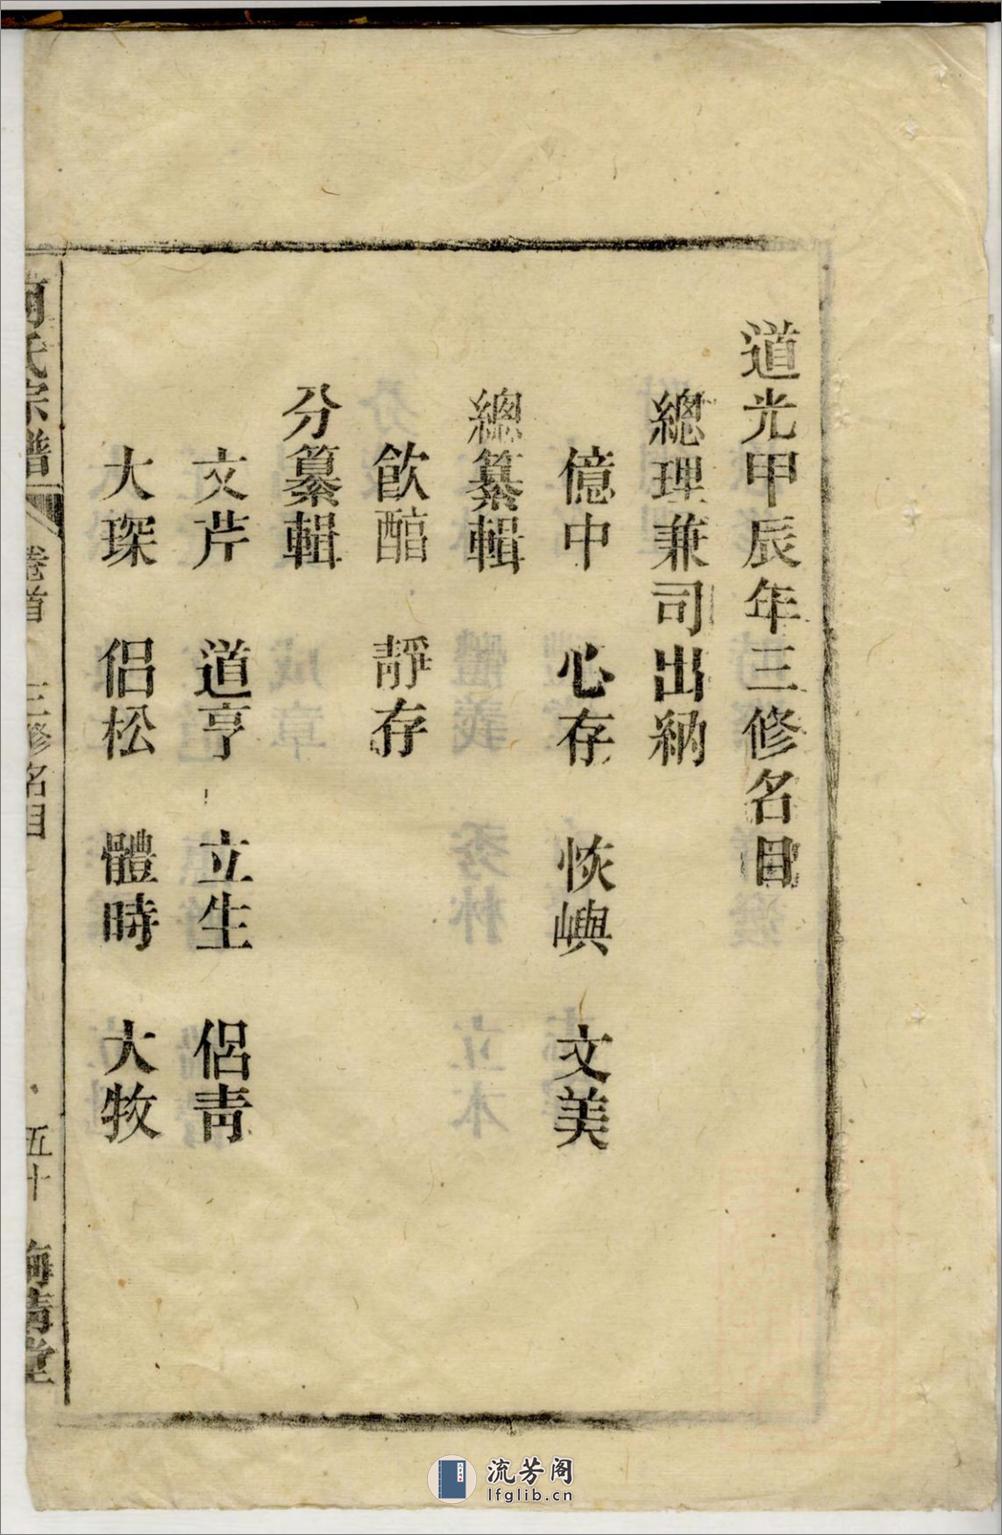 道光甲辰年三修名目
總理兼司出納
億中 心存 恢嶼 文美
總纂輯
飲醅 靜存
分纂輯
文芹 道亨 立生 侶靑
大琛 侶松 體時 大牧
氏宗譜 卷首 三修名目 五十 堂
流芳阁
lfglib.cn